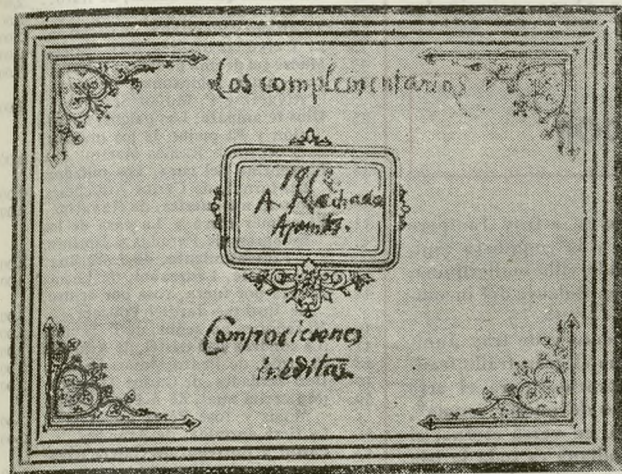 Los complementarios
1912.
A. Machado
Apuntes.
Composiciones
inéditas.